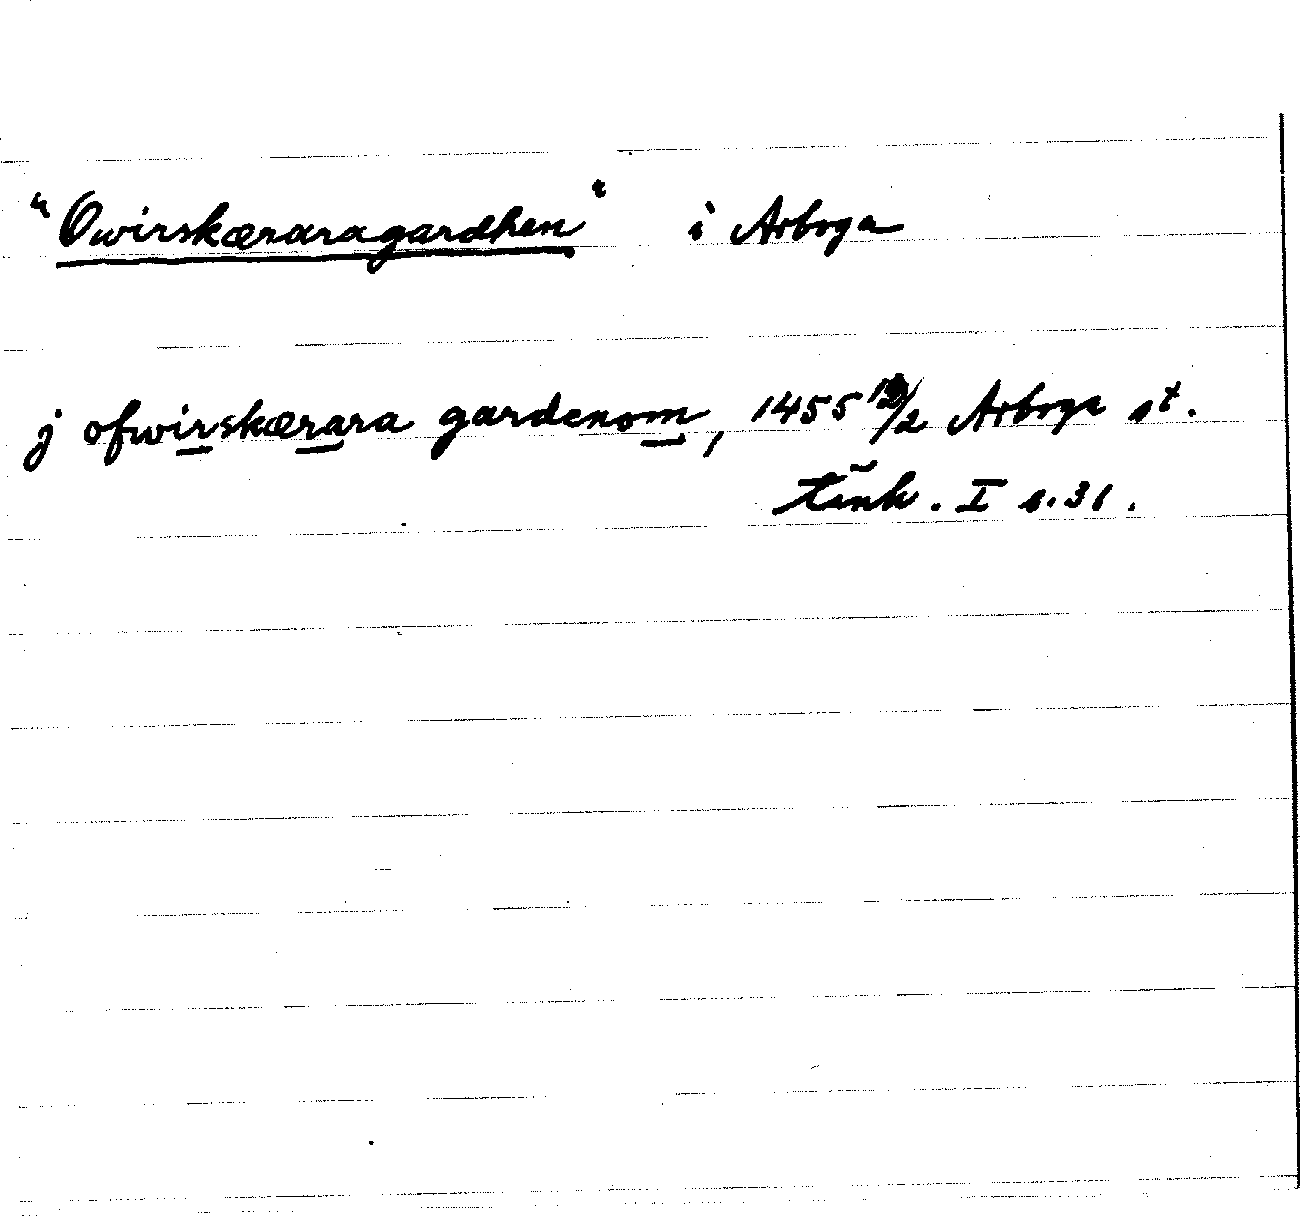 "Owirskæraragardhen" i Arboga
j ofwirskærara gardenom, 1455 12/2 Arboga st.
tänk. I s. 31.